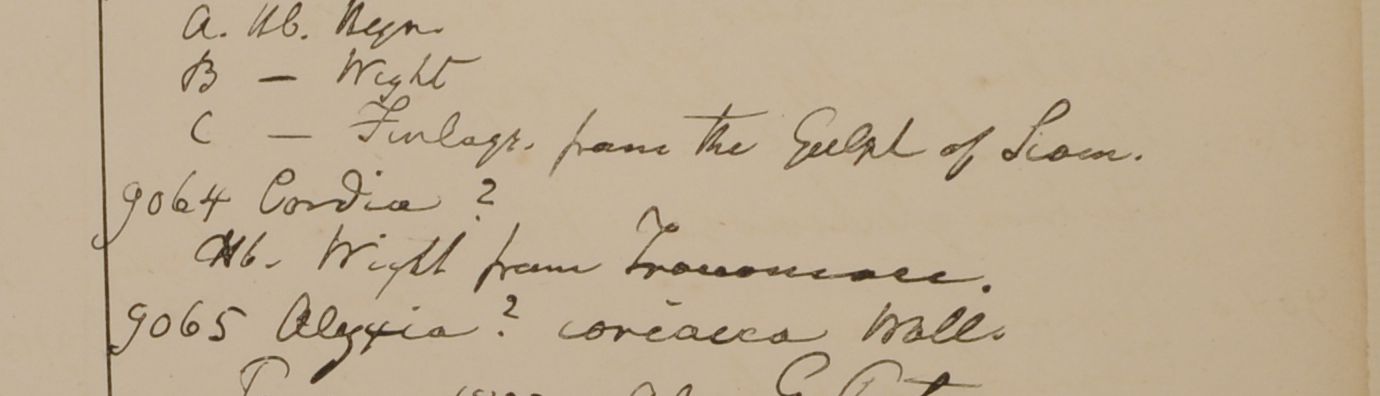 A. Hb. Heyn.
B — Wight
C — Finlays. from the Gulph of Siam.
9064 Cordia ?
Hb. Wight from
9065 Alyxia ? coriacea Wall.